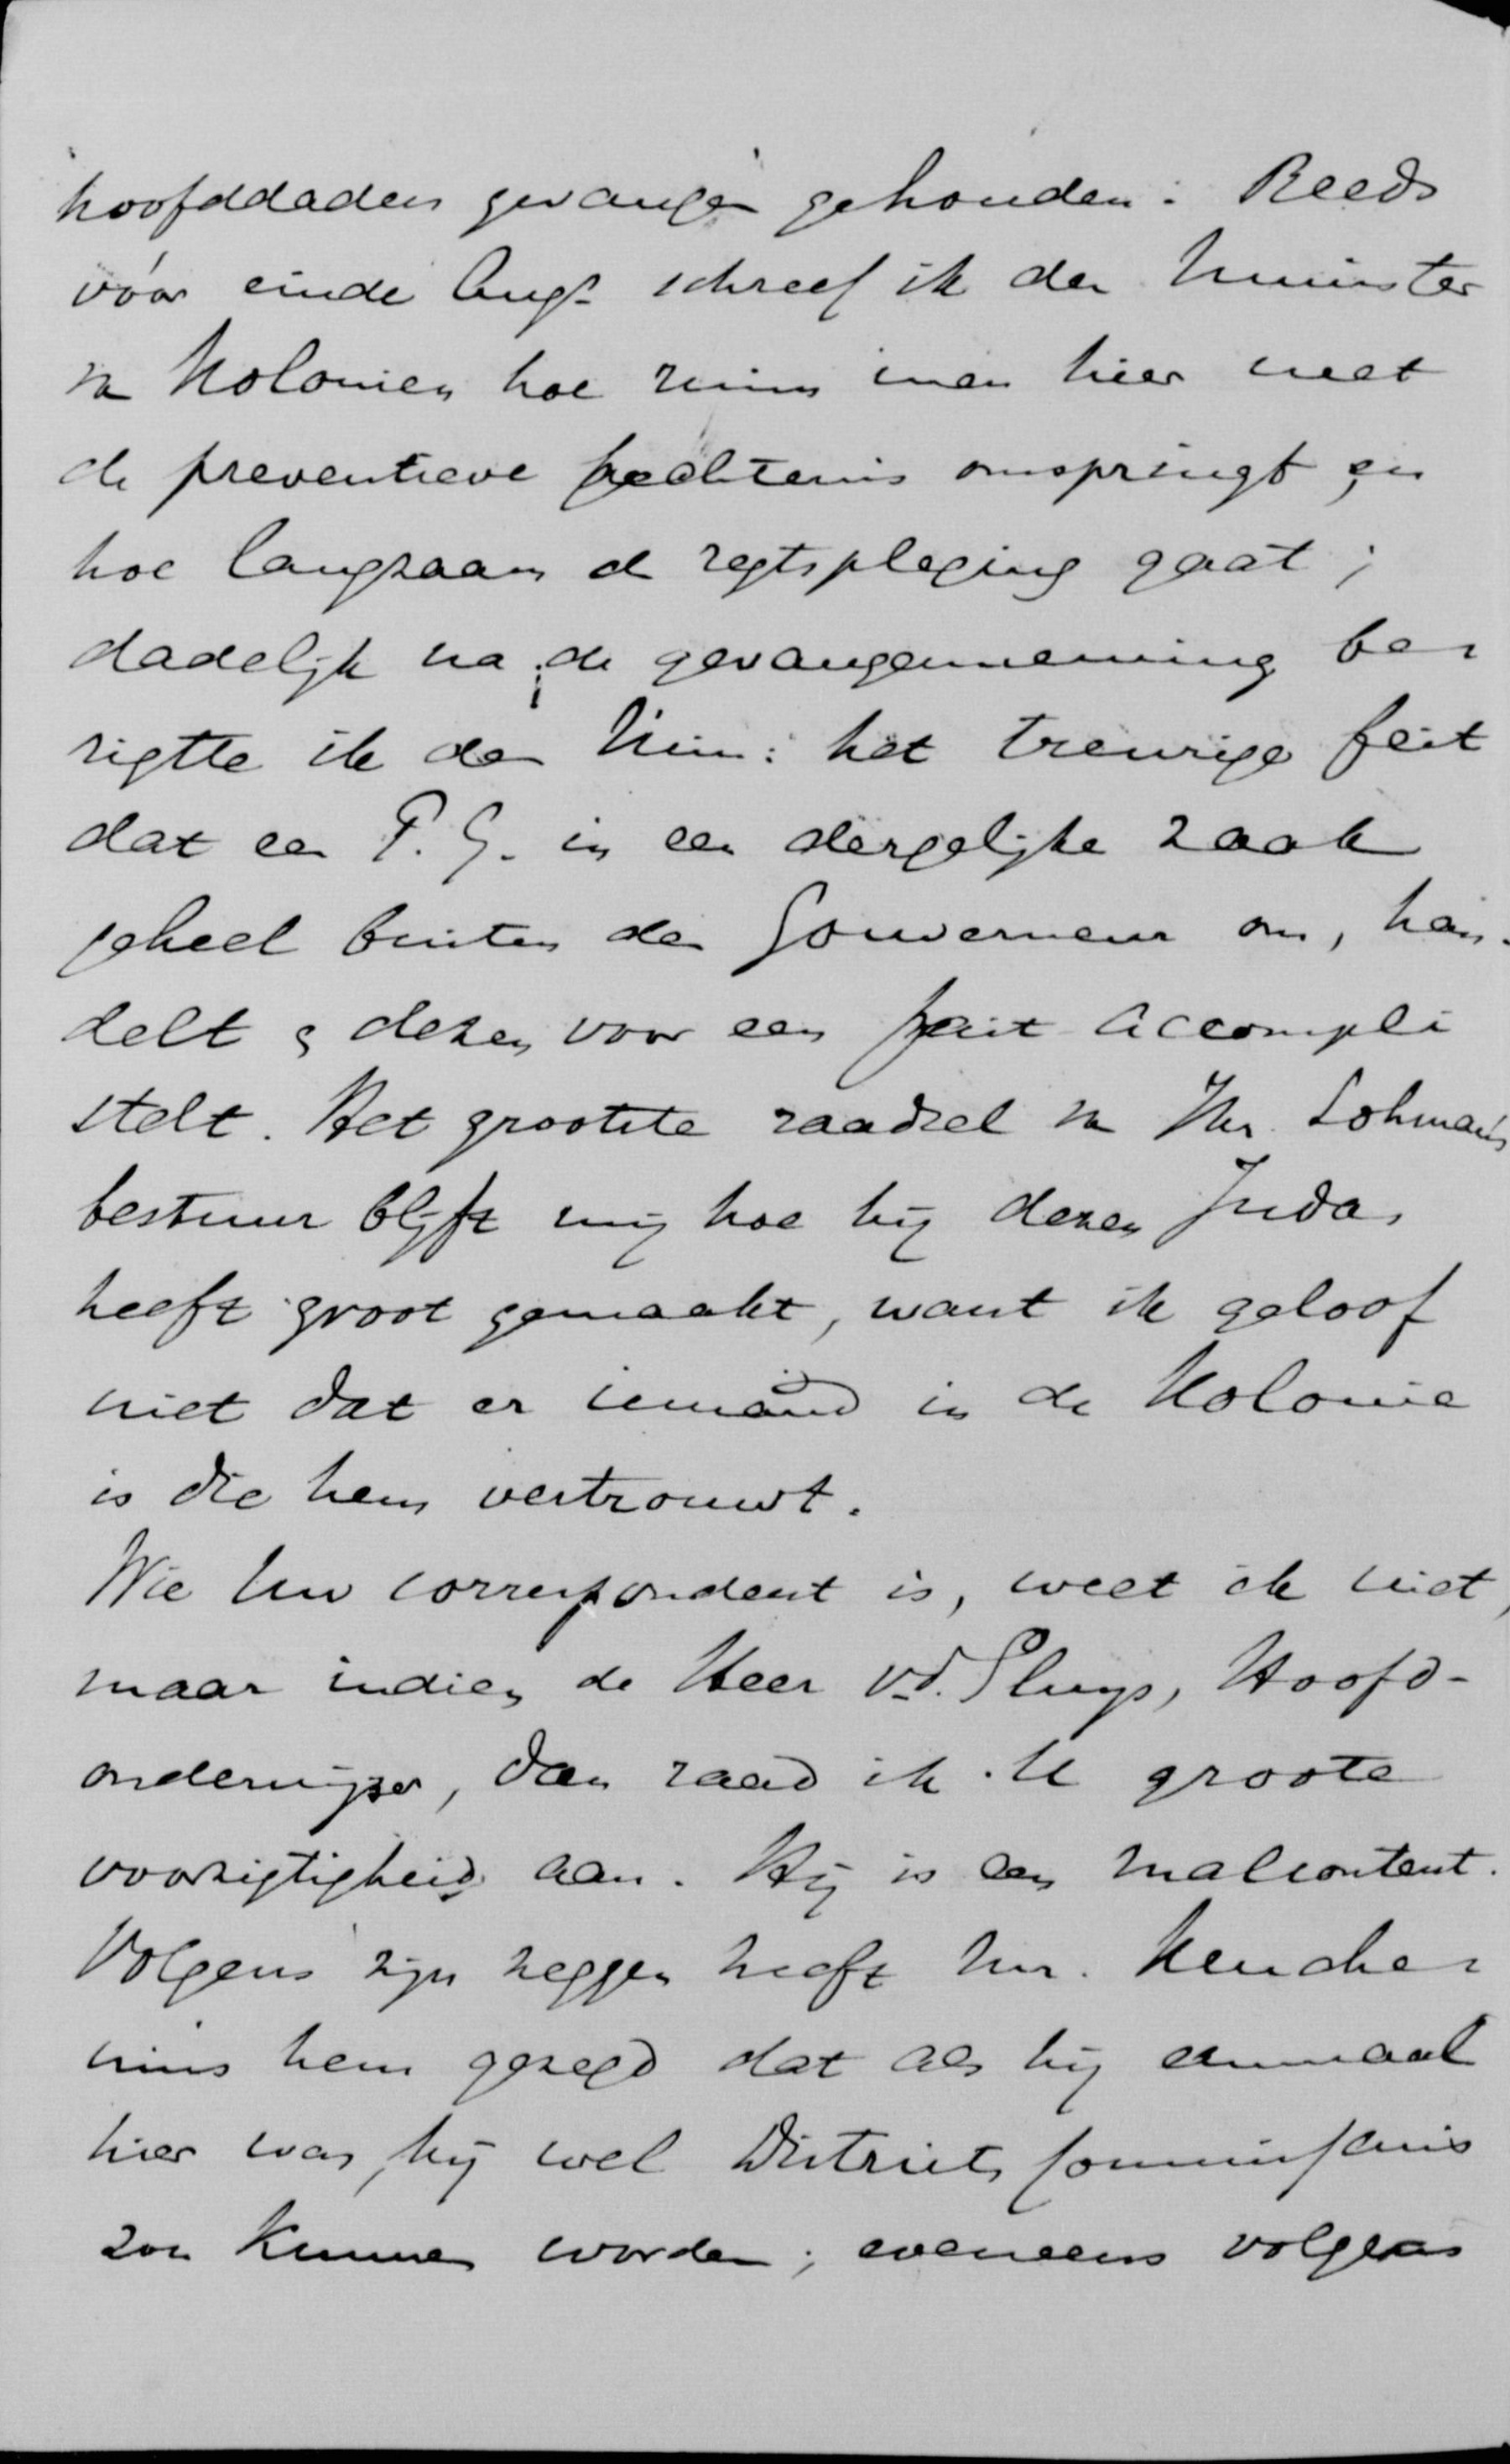 hoofddaders gevangen gehouden. Reeds
vóór einde Augs schreef ik den Minister
van Kolonien hoe ruim men hier met
de preventieve hechtenis omspringt en
hoe langzaam de regtspleging gaat;
dadelijk na de gevangenneming be-
rigtte ik den Min: het treurige feit
dat een P.G. in een dergelijke zaak
geheel buiten den Gouverneur om, han-
delt & dezen voor een fait accompli
stelt. Het grootste raadsel van Jhr Lohman's
bestuur blijft mij hoe hij dezen Judas
heeft groot gemaakt, want ik geloof
niet dat er iemand in de Kolonie
is die hem vertrouwt.
Wie Uw correspondent is, weet ik niet,
maar indien de Heer v.d. Sluys, Hoofd-
onderwijzer, dan raad ik U groote
voorzigtigheid aan. Hij is een malcontent.
Volgens zijn zeggen heeft mr. Keuche-
nius hem gezegd dat als hij eenmaal
hier was, hij wel Districts Commissaris
zou kunnen worden; eveneens volgens